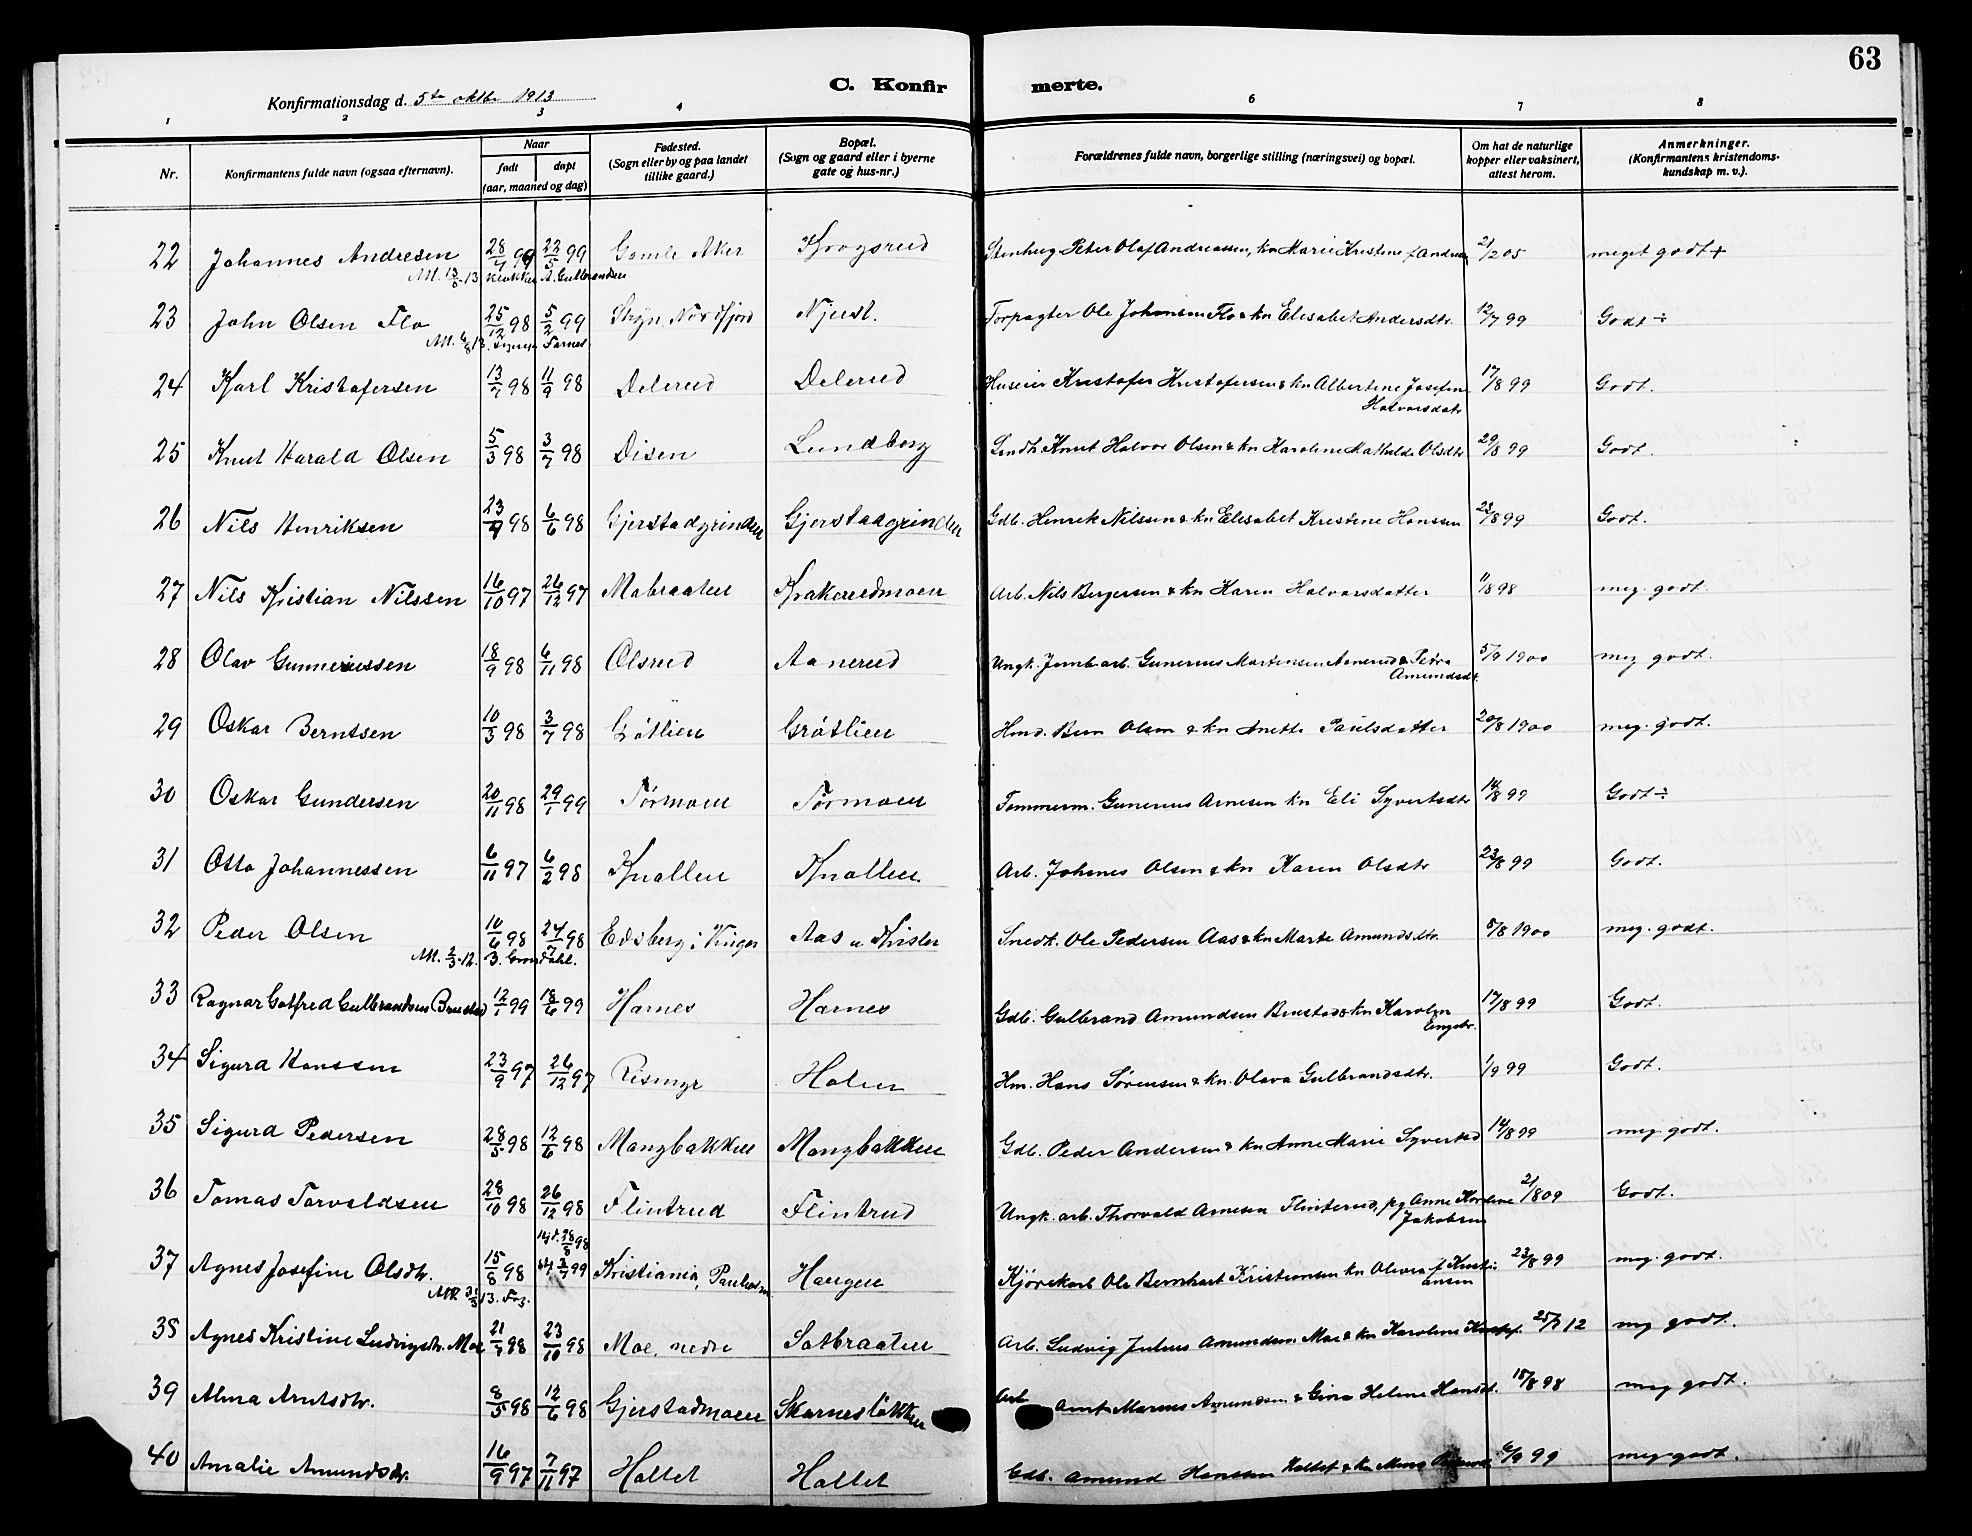 63
C. Konfirmerte.
Konfirmationsdag d. 5te oktbr 1913
1 2 3 4 6 7 8
Nr. Konfirmantens fulde navn (ogsaa efternavn). Naar født døpt (aar, maaned og dag) Fødested. (Sogn eller by og paa landet tillike gaard.) Bopæl. (Sogn og gaard eller i byerne gate og hus-nr.) Forældrenes fulde navn, borgerlige stilling (næringsvei) og bopæl. Om hat de naturlige kopper eller vaksinert, attest herom. Anmerkninger. (Konfirmantens kristendomskundskap m. v.).
22 Johannes Andresen 28/4 99 22/5 99 Gamle Aker Krogsrud Peter Olaf Andreassen, kn Marie Kristine f. 21/2 05 meget godt +
Att. 13/8-13 Klokker A. Gulbrandsen
23 John Olsen Flo 25/12 98 5/2 99 Stryn, Nordfjord Njust. Forpagter Ole Johansen Flo & kn Elisabet Andersdtr. 12/7 99 Godt ÷
24 Karl Kristofersen 13/7 98 11/9 98 Delerud Delerud Huseier Kristofer Kristofersen & kn Albertine Josefine Halvorsdatr 17/8 99 Godt.
25 Knut Harald Olsen 5/3 98 3/7 98 Disen Lundborg Knut Halvor Olsen & kn Karoline Mathilde Olsdtr 29/8 99 Godt.
26 Nils Henriksen 23/4 98 6/6 98 Gjerstadgrinden Gjerstadgrinden Gdb. Henrik Nilssen & kn Elisabet Kristine Hanssen 23/8 99 Godt.
27 Nils Kristian Nilssen 16/10 97 26/12 97 Mabraaten Krakerudmoen Arb. Nils Bergersen & kn Karen Halvorsdatter 11/8 98 meg. godt.
28 Olav Gunneriussen 18/9 98 6/11 98 Olsrud Aanerud Ungk. Jernb.arb. Gunerius Martinsen Aanerud & Petra Amundsdt. 5/9 1900 meg godt.
29 Oskar Berntsen 10/3 98 3/7 98 Grøtlien Grøtlien Hmd. Bern Olsen & kn Anette Paulsdatter 20/8 1900 meg. godt.
30 Oskar Gundersen 20/11 98 29/1 99 Tørmoen Tørmoen Tømmerm. Gunerius Arnesen kn Eli Syvertsdtr 14/8 99 Godt ÷
31 Otto Johannessen 6/11 97 6/2 98 Knallen Knallen Arb. Johanes Olsen & kn Karen Olsdtr 23/8 99 Godt.
32 Peder Olsen 10/6 98 24/7 98 Edsberg i Vinger Aas u Snedk. Ole Pedersen Aas & kn Marte Amundsdtr. 5/8 1900 meg. godt.
Att. 2/3-12.
33 Ragnar Gotfred Gulbrandsen Brustad 12/1 99 18/6 99 Harnes Harnes Gdb. Gulbrand Amundsen Brustad & kn Karolin Engebr. 17/8 99 Godt.
34 Sigurd Hanssen 23/9 97 26/12 97 Rismyr Holen Hm. Hans Sørensen & kn. Olava Gulbrandsdtr. 1/9 99 Godt.
35 Sigurd Pedersen 28/3 98 12/6 98 Mangbakken Mangbakken Gdb. Peder Andersen & kn Anne Marie Syvertsd 14/8 99 meg. godt.
36 Tomas Torvaldsen 28/10 98 26/12 98 Flintrud Flintrud Ungk. arb. Thorvald Arnesen Flinterud, pg Anne Karoline Jakobsen 21/8 09 Godt.
hjd. 28/8 98
37 Agnes Josefine Olsdtr. 15/8 98 99 Kristiania, Haugen Kjørekarl Ole Bernhart Kristiansen kn Olivia f Kristiansen 23/8 99 meg. godt.
38 Agnes Kristine Ludvigsdtr. Moe 21/7 98 23/10 98 Moe, nedre Sotbraaten Arb. Ludvig Julius Amundsen Moe & kn Karoline 25/7 12 meg godt.
39 Alma Arntsdtr. 8/5 98 12/6 98 Gjerstadmoen Skarnesløkken Arb Arnt Marius Amundsen & Gina Helene Hansdt. 15/8 98 meg godt.
40 Amalie Amundsdtr. 16/9 97 7/11 97 Haltet Haltet Gdb. Amund Hanssen Haltet & kn 6/9 99 meg. godt.